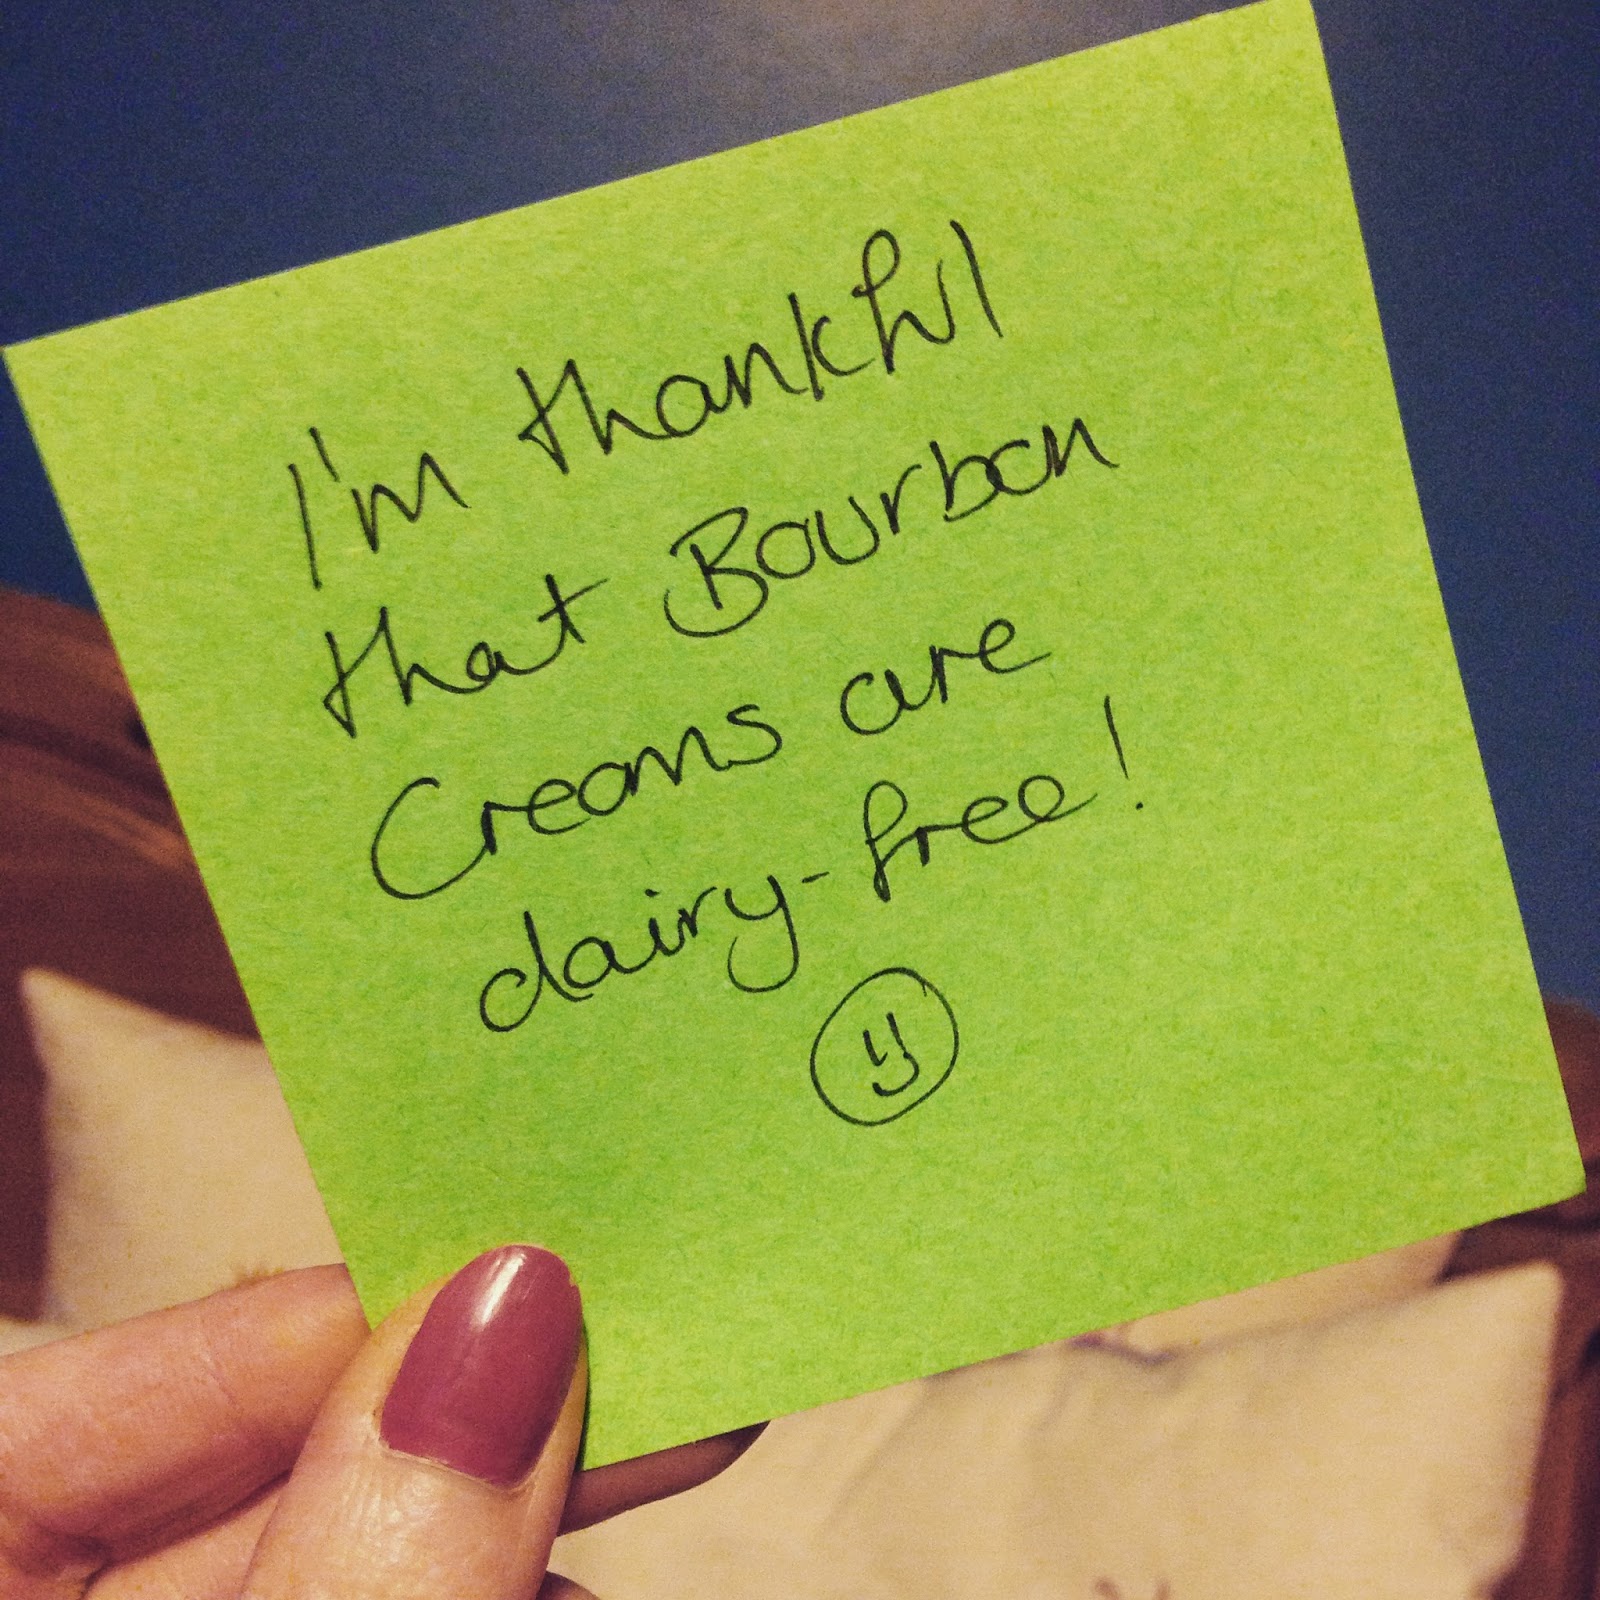 I'm thankful
that Bourbon
Creams are
dairy-free!